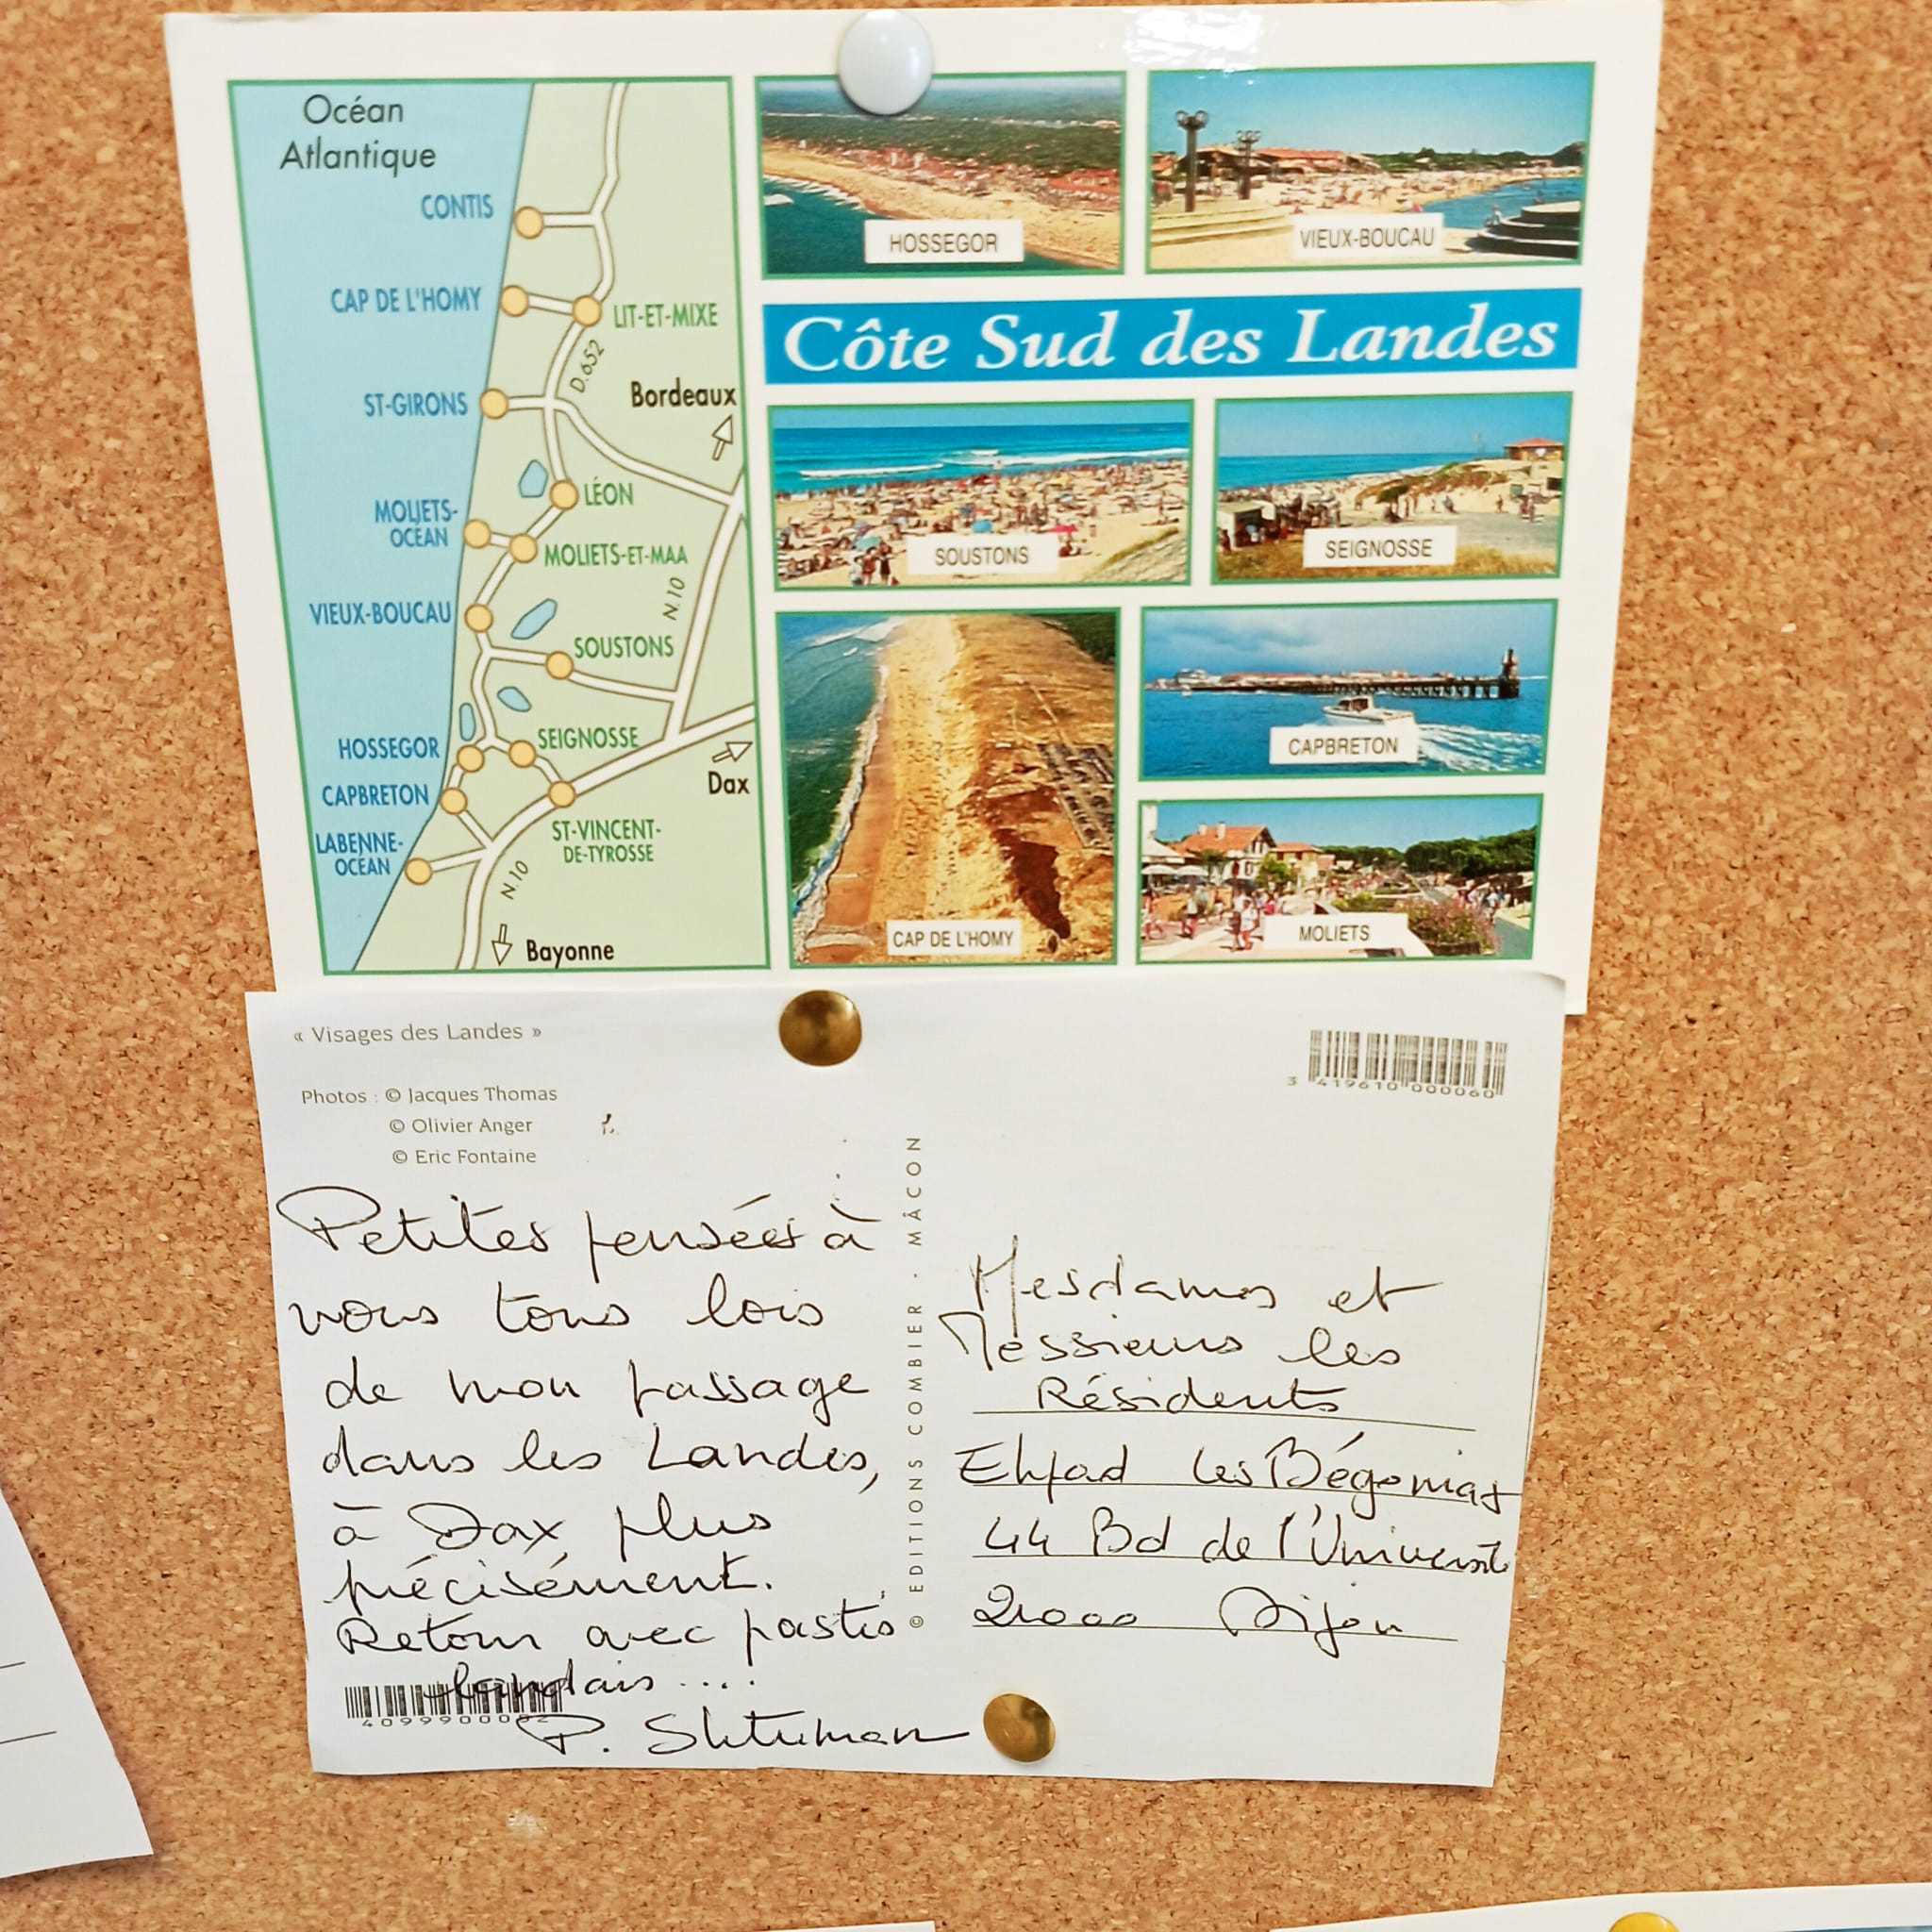 Océan
Atlantique
CONTIS
CAP DE L'HOMY
LIT-ET-MIXE
D.652
ST-GIRONS
Bordeaux
LÉON
MOLIETS-
OCÉAN
MOLIETS-ET-MAA
N.10
VIEUX-BOUCAU
SOUSTONS
HOSSEGOR
SEIGNOSSE
CAPBRETON
Dax
LABENNE-
OCÉAN
ST-VINCENT-
DE-TYROSSE
N.10
Bayonne
HOSSEGOR
VIEUX-BOUCAU
Côte Sud des Landes
SOUSTONS
SEIGNOSSE
CAP DE L'HOMY
CAPBRETON
MOLIETS
« Visages des Landes »
Photos : © Jacques Thomas
© Olivier Anger
© Eric Fontaine
3 419610 000060
Petites pensées à
vous tous lors
de mon passage
dans les Landes,
à Dax plus
précisément.
Retour avec pastis
landais ....
P.
© EDITIONS COMBIER - MÂCON
Mesdames et
Messieurs les
Résidents
Ehpad Les Bégonias
44 Bd de l'Université
21000 Dijon